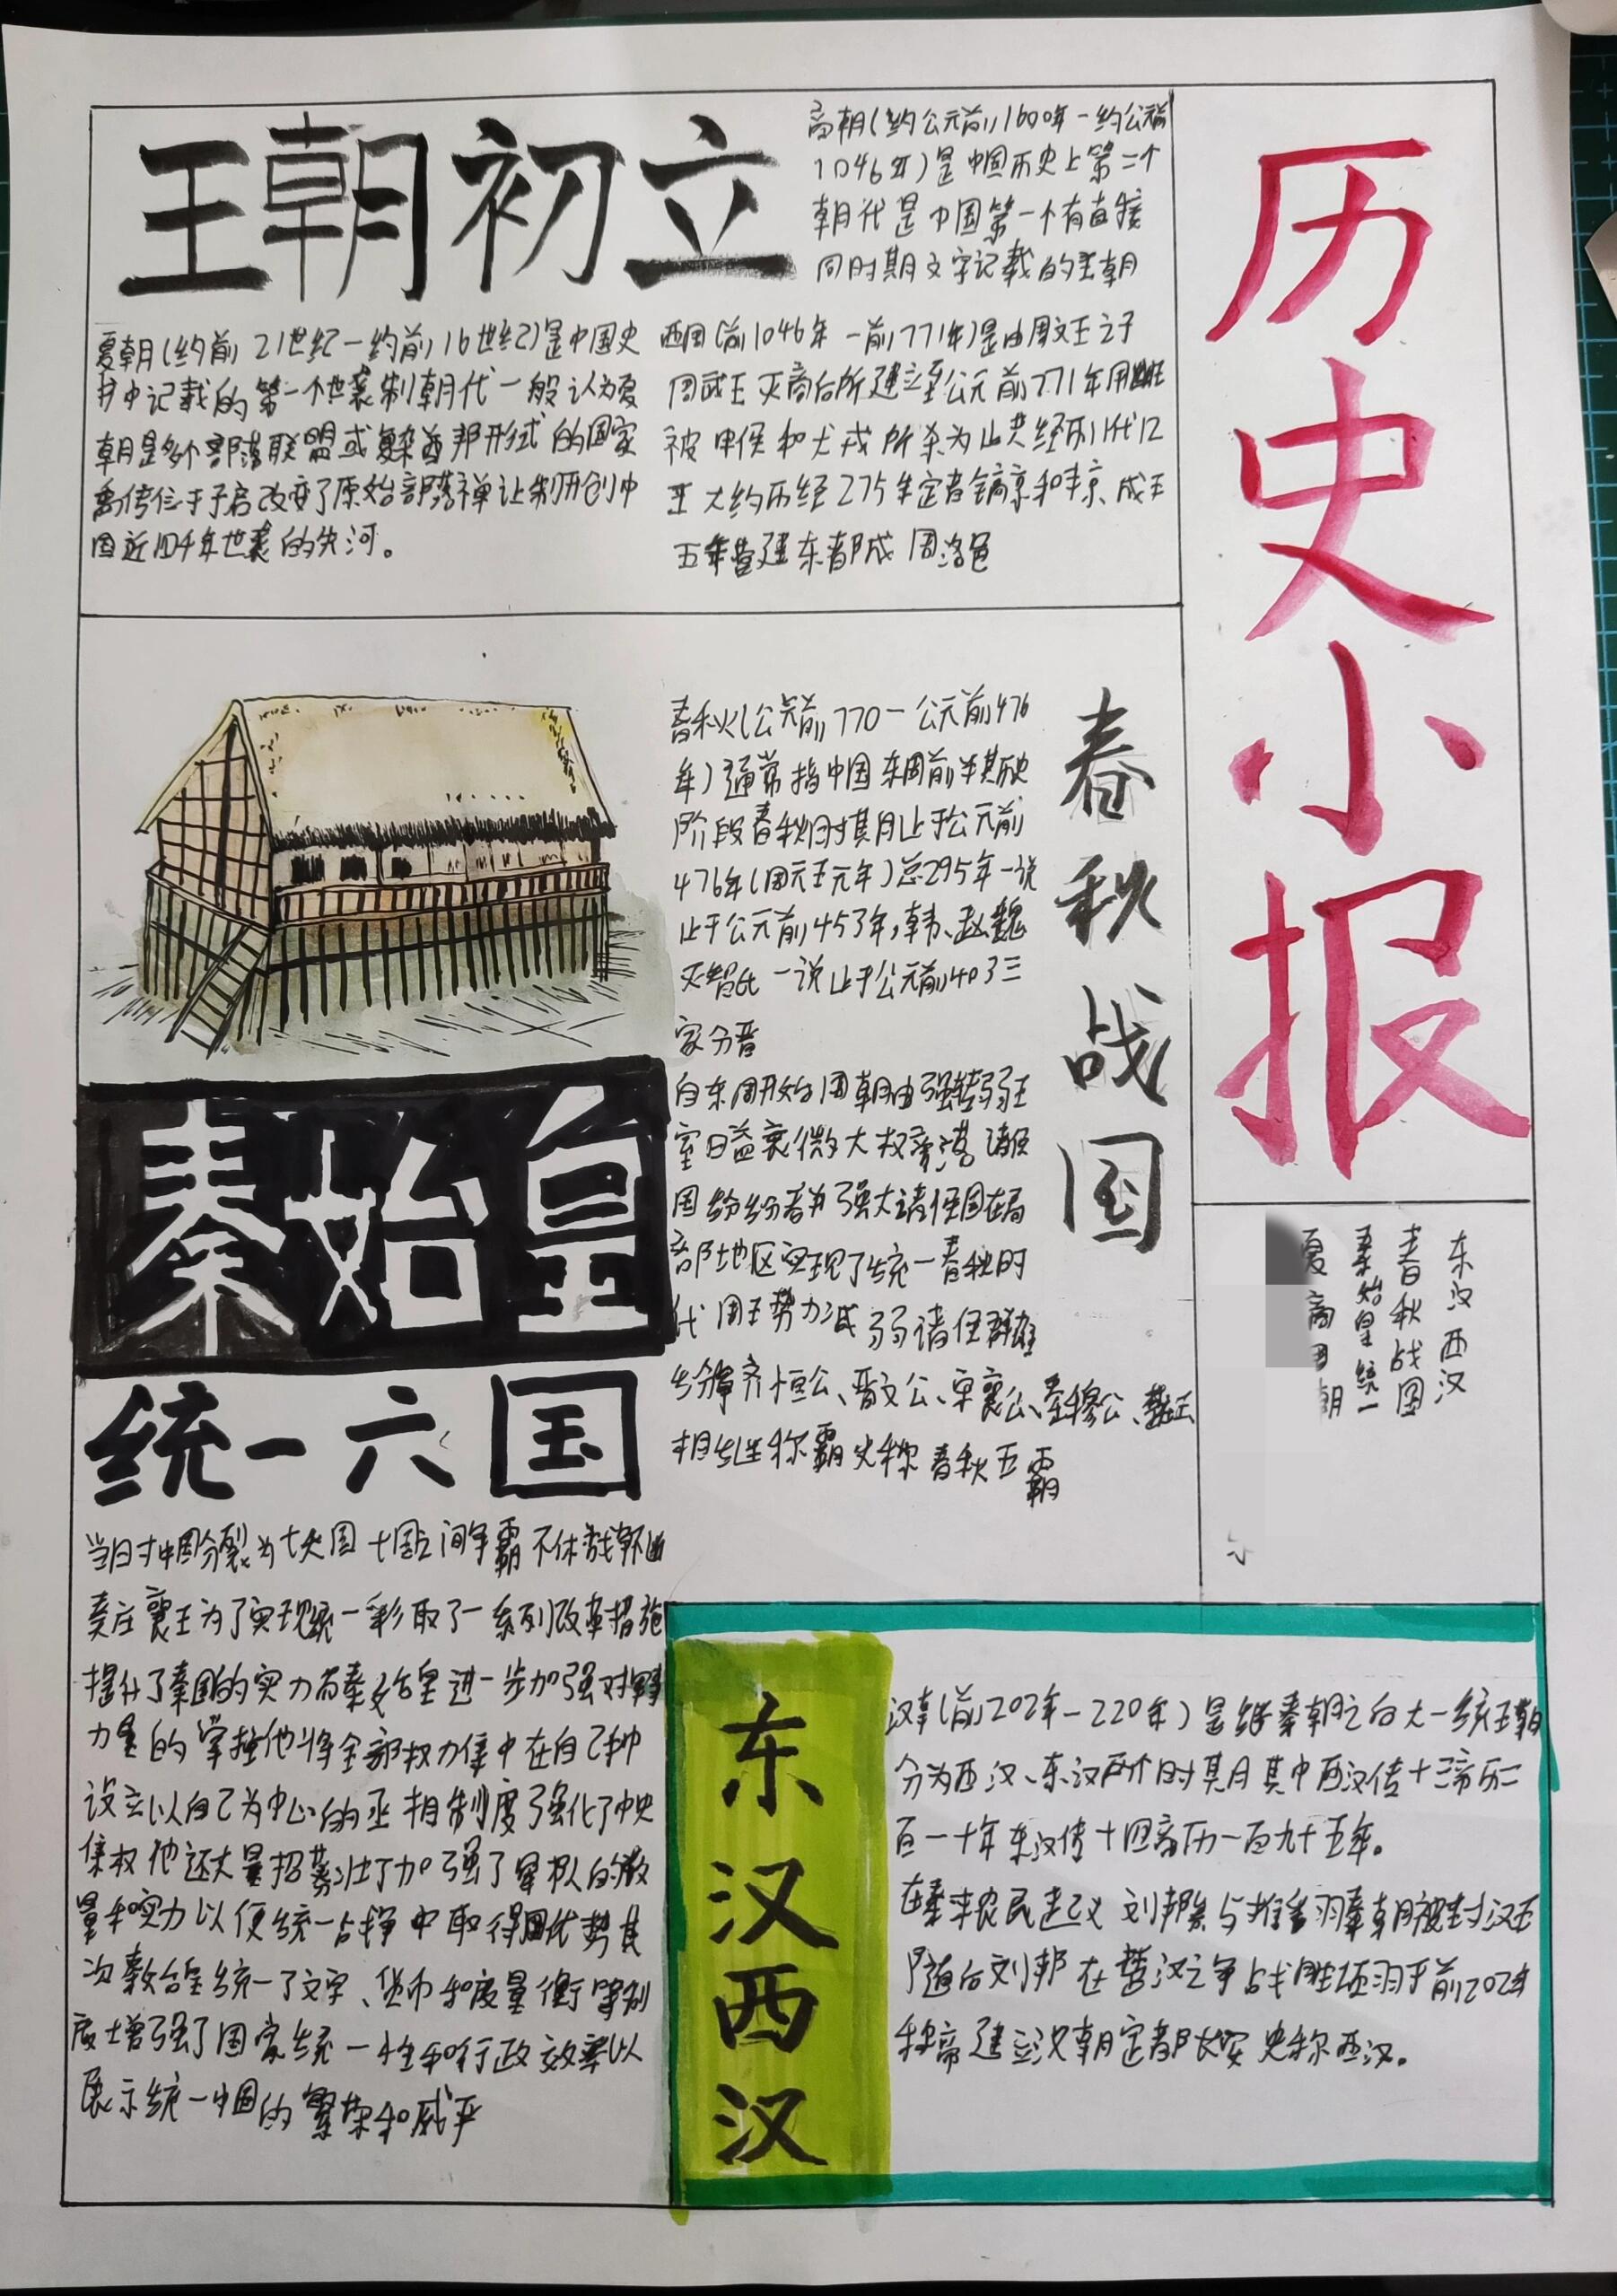 历史小报
王朝初立
商朝(约公元前1600年—约公元前
1046年)是中国历史上第二个
朝代是中国第一个有直接
同时期文字记载的王朝
夏朝(约前21世纪—约前16世纪)是中国史
书中记载的第一个世袭制朝代一般认为夏
朝是多个部落联盟或复杂酋邦形式的国家
禹传位于子启改变了原始部落禅让制开创中
国近四千年世袭的先河。
西周(前1046年—前771年)是由周文王之子
周武王灭商后所建立至公元前771年周幽王
被申侯和犬戎所杀为止共经历11代12
王大约历经275年定者镐京和丰京、成王
五年营建东都成周洛邑
春秋战国
春秋(公元前770—公元前476
年)通常指中国东周前半期历史
阶段春秋时期止于公元前
476年(周元王元年)总295年一说
止于公元前453年,韩、赵魏
灭智氏一说止于公元前403三
家分晋
自东周开始周朝由强转弱王
室日益衰微大权旁落诸侯
国纷纷 强大诸侯国在局
部地区实现了统一春秋时
代周王势力减弱诸侯群雄
纷争齐恒公、晋文公、宋襄公、秦穆公、楚庄王
相继称霸史称春秋五霸
秦始皇
统一六国
当时中国分裂为七大国七国之间争霸不休战乱不
秦庄襄王为了实现统一采取了一系列改革措施
提升了秦国的实力而秦始皇进一步加强对军事
力量的掌握他将全部权力集中在自己手中
设立以自己为中心的丞相制度强化了中央
集权他还大量招募壮丁加强了军队的数
量和实力以便统一战争中取得优势其
次秦始皇统一了文字、货币和度量衡等制
度增强了国家统一性和行政效率以
展示统一中国的繁荣和威严
东汉西汉
春秋战国
秦始皇统一
夏商周朝
东汉西汉
汉朝(前202年—220年)是继秦朝之后大一统王朝
分为西汉、东汉两个时期其中西汉传十二帝历二
百一十年东汉传十四帝历一百九十五年。
在秦末农民起义刘邦 与推翻秦朝被封汉王
随后刘邦在楚汉之争战胜项羽于前202年
称帝建立汉朝定都长安史称西汉。